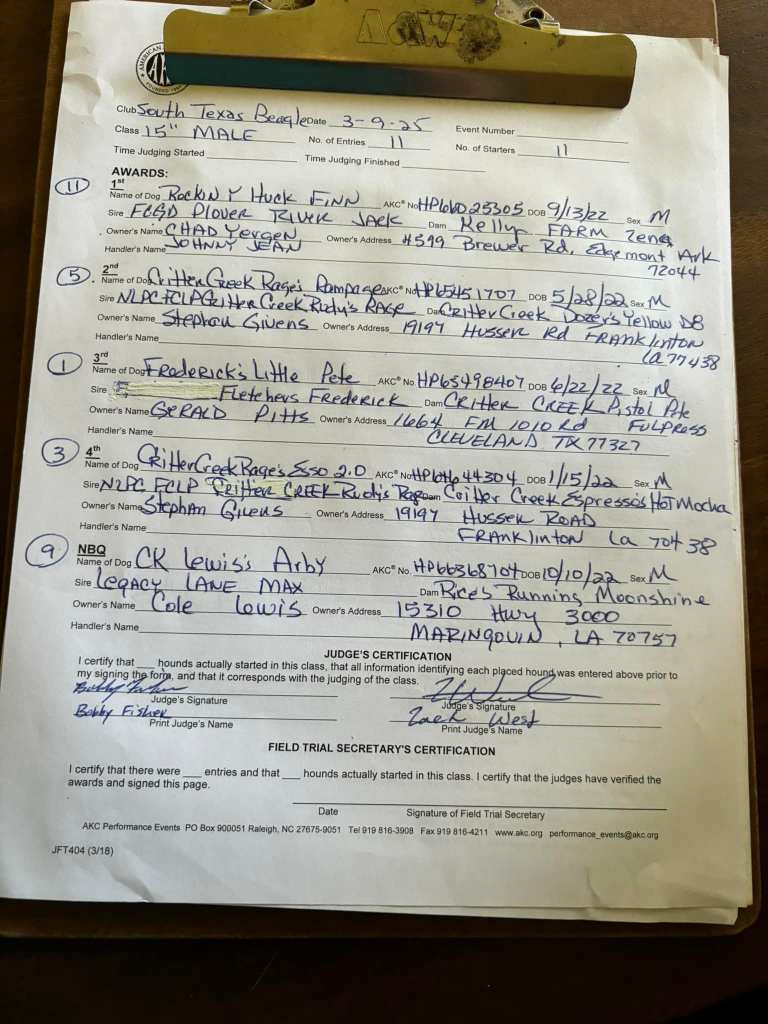 Club South Texas Beagle Date 3-9-25 Event Number
Class 15" MALE No. of Entries 11 No. of Starters 11
Time Judging Started Time Judging Finished
AWARDS:
11 1st
Name of Dog Rockin Y Huck Finn AKC® No. DOB 9/13/22 Sex M
Sire FCGD Plover River Jack Dam Kelly FARM
Owner's Name CHAD Yergen Owner's Address #599 Brewer Rd, Edgemont Ark
Handler's Name JOHNNY JEAN 72044
5 2nd
Name of Dog Critter Creek Rage's Rampage AKC® No HP65451707 DOB 5/28/22 Sex M
Sire NLPC FCLP Critter Creek Rudy's RAGE Dam Critter Creek Dozer's Yellow
Owner's Name Stephan Givens Owner's Address 19197 Husser Rd FRANKlinton
Handler's Name La 77438
1 3rd
Name of Dog Frederick's Little Pete AKC® No HP65498407 DOB 6/22/22 Sex M
Sire Fletchers Frederick Dam CRITTER CREEK Pistol Pete
Owner's Name GERALD PITTS Owner's Address 1664 FM 1010 Rd FULPRESS
Handler's Name CLEVELAND TX 77327
3 4th
Name of Dog CRitter Creek Rage's Esso 2.0 AKC® No HP64644304 DOB 1/15/22 Sex M
Sire NLPC FCLP Critter CREEK Rudy's Rage Dam Critter Creek Espresso's Hot Mocha
Owner's Name Stephan Givens Owner's Address 19197 Husser ROAD
Handler's Name FRANKlinton La 70438
9 NBQ
Name of Dog CK Lewis's Arby AKC® No. HP66368704 DOB 10/10/22 Sex M
Sire Legacy LANE MAX Dam Rice's Running Moonshine
Owner's Name Cole Lewis Owner's Address 15310 Hwy 3000
Handler's Name MARINGOUIN, LA 70757
JUDGE'S CERTIFICATION
I certify that ___ hounds actually started in this class, that all information identifying each placed hound was entered above prior to
my signing the form, and that it corresponds with the judging of the class.
Judge's Signature Judge's Signature
Bobby Fisher Zach West
Print Judge's Name Print Judge's Name
FIELD TRIAL SECRETARY'S CERTIFICATION
I certify that there were ___ entries and that ___ hounds actually started in this class. I certify that the judges have verified the
awards and signed this page.
Date Signature of Field Trial Secretary
AKC Performance Events PO Box 900051 Raleigh, NC 27675-9051 Tel 919 816-3908 Fax 919 816-4211 www.akc.org performance_events@akc.org
JFT404 (3/18)